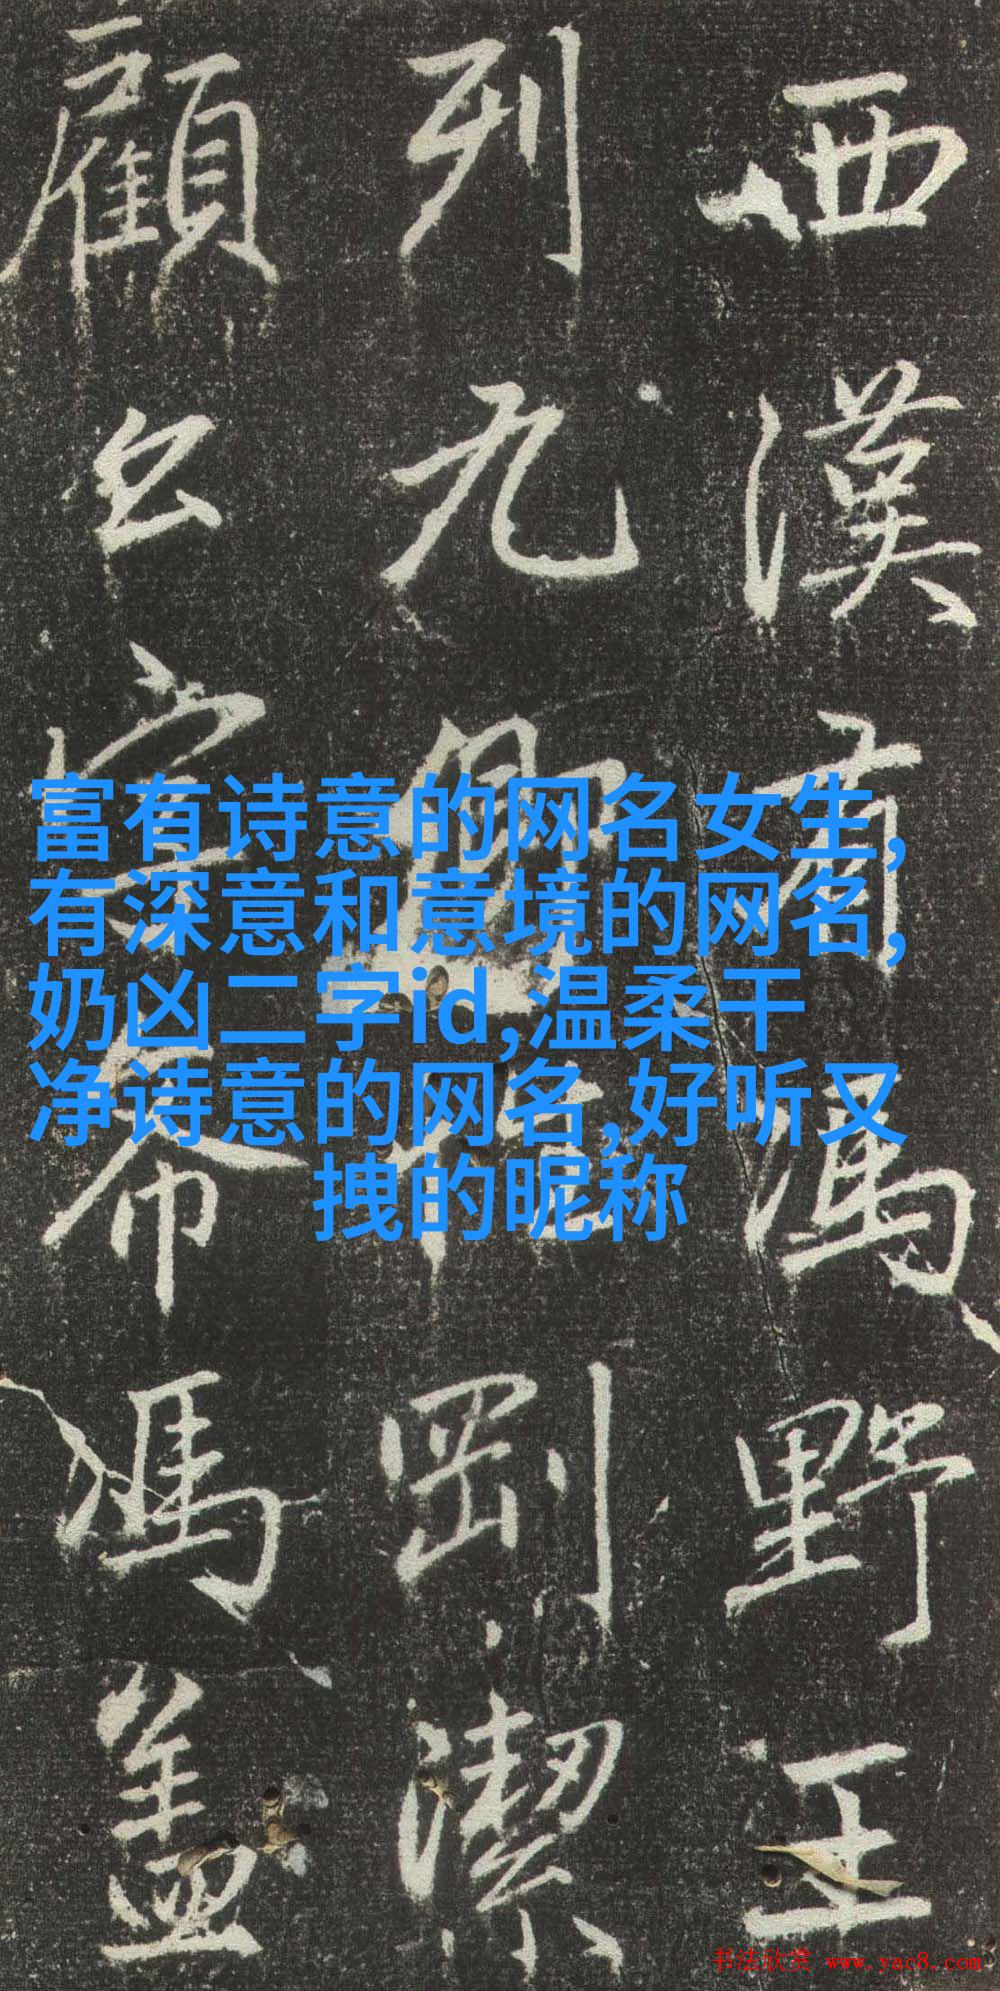 西漢有馮野王
列九卿性剛潔
顧公字希馮盖
富有诗意的网名女生,
有深意和意境的网名,
奶凶二字id,温柔干
净诗意的网名,好听又
拽的昵称
书法欣赏 www.yac8.com